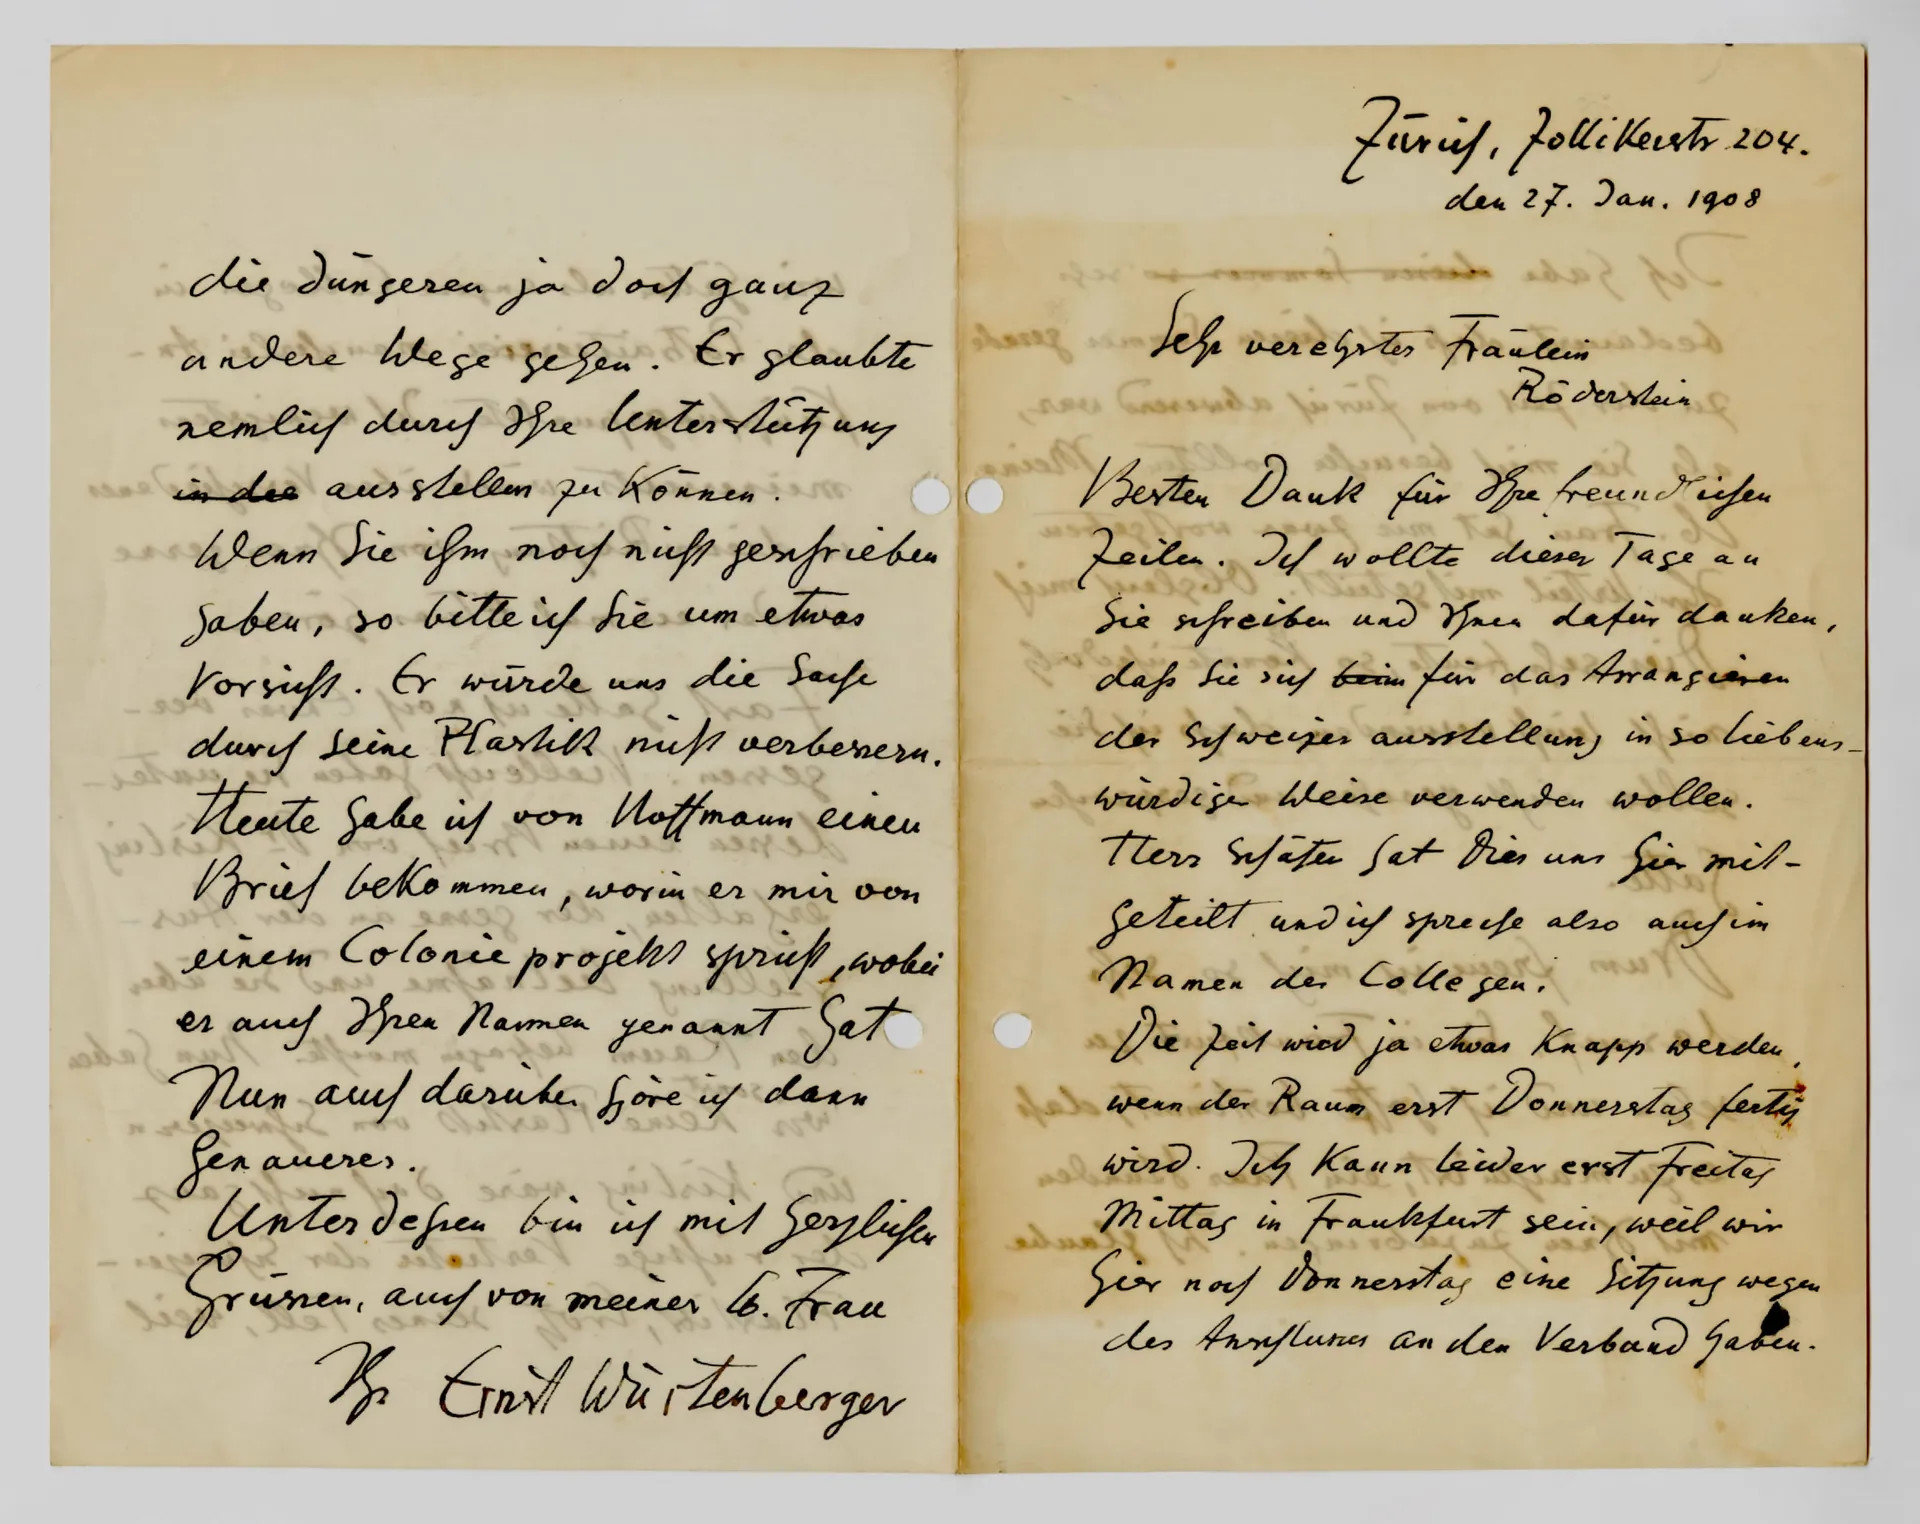 Zürich, Zollikerstr 204.
den 27. Jan. 1908
Sehr verehrtes Fräulein
Röderstein
Besten Dank für Ihre freundlichen
Zeilen. Ich wollte dieser Tage an
Sie schreiben und Ihnen dafür danken,
daß Sie sich beim für das Arrangieren
der Schweizer ausstellung in so liebens-
würdiger Weise verwenden wollen.
Herr Schäfer hat dies uns hier mit-
geteilt und ich spreche also auch im
Namen der Collegen.
Die Zeit wird ja etwas Knapp werden,
wenn der Raum erst Donnerstag fertig
wird. Ich Kann leider erst Freitag
Mittag in Frankfurt sein, weil wir
hier noch Donnerstag eine Sitzung wegen
des Anschlusses an den Verband haben.
die Jüngeren ja doch ganz
andere Wege gehen. Er glaubte
nemlich durch Ihre Unterstützung
in der ausstellen zu Können.
Wenn Sie ihm noch nicht geschrieben
haben, so bitte ich Sie um etwas
Vorsicht. Er würde uns die Sache
durch seine Plastik nicht verbessern.
Heute habe ich von Hoffmann einen
Brief bekommen, worin er mir von
einem Colonieprojekt spricht, wobei
er auch Ihren Namen genannt hat
Nun auch darüber höre ich dann
genaueres.
Unterdessen bin ich mit herzlichen
Grüssen, auch von meiner lb. Frau
Ihr Ernst Würtenberger